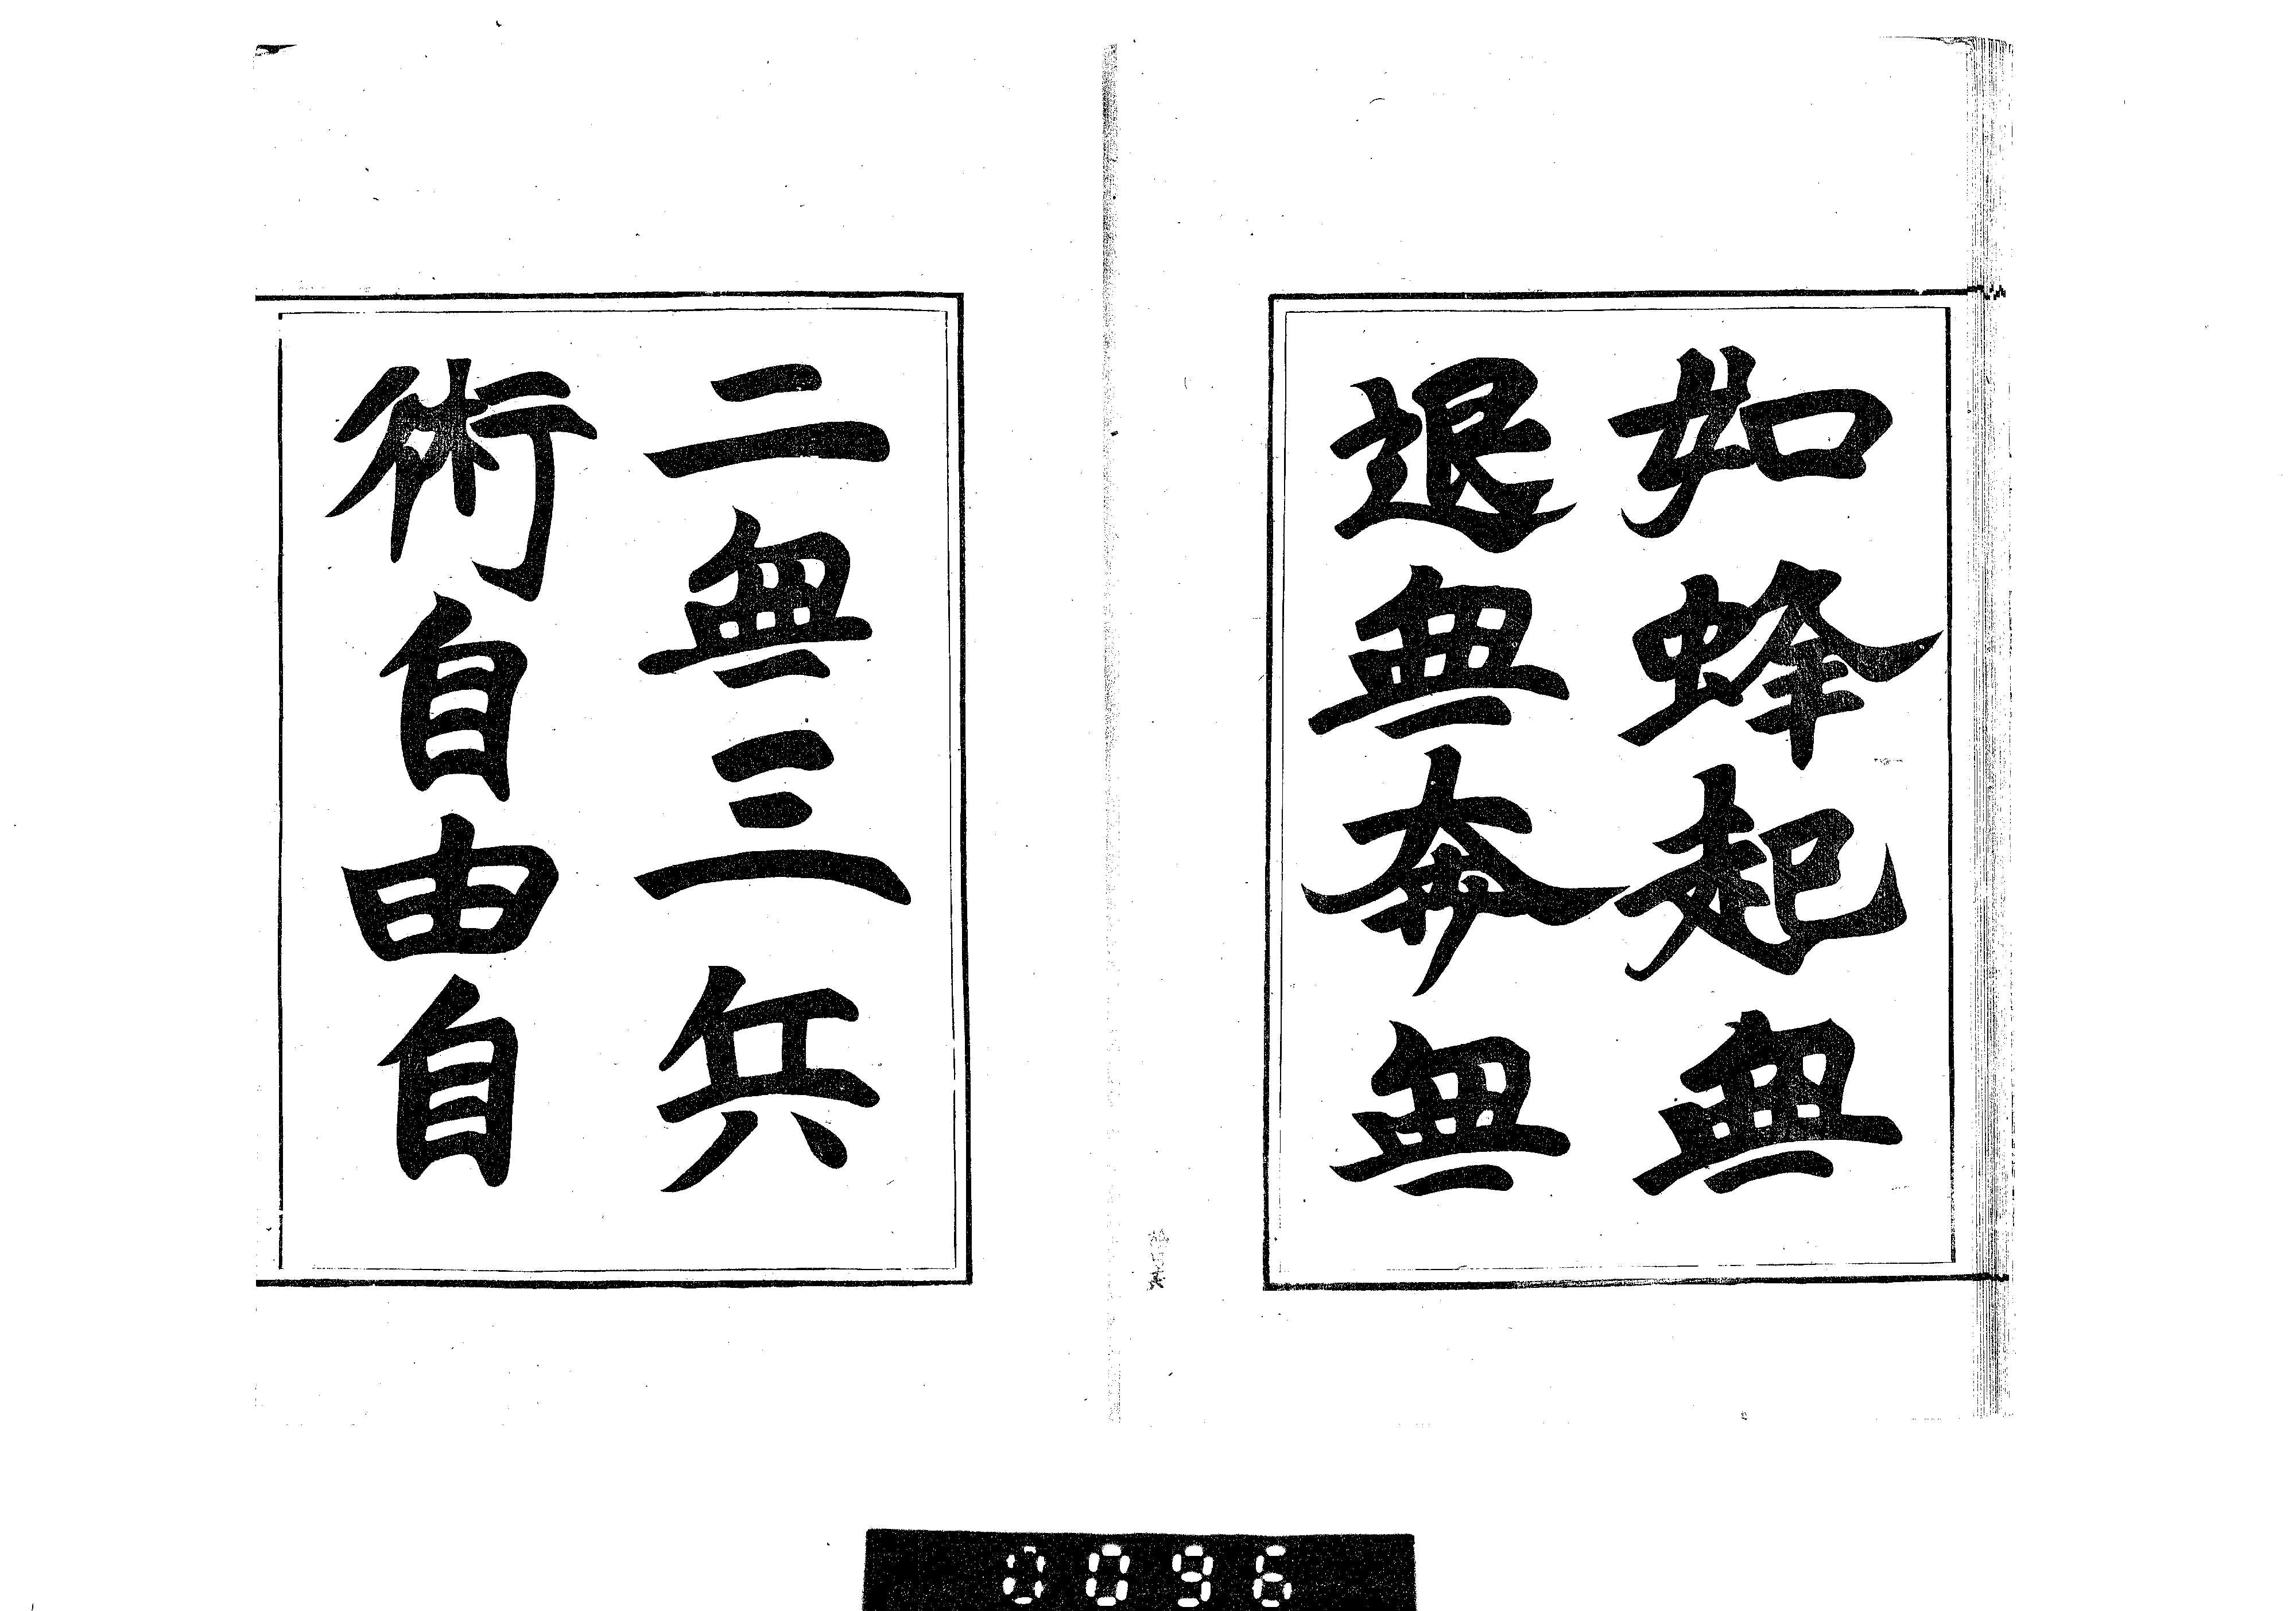 如蜂起無
退無奔無
二無三兵
術自由自
0096